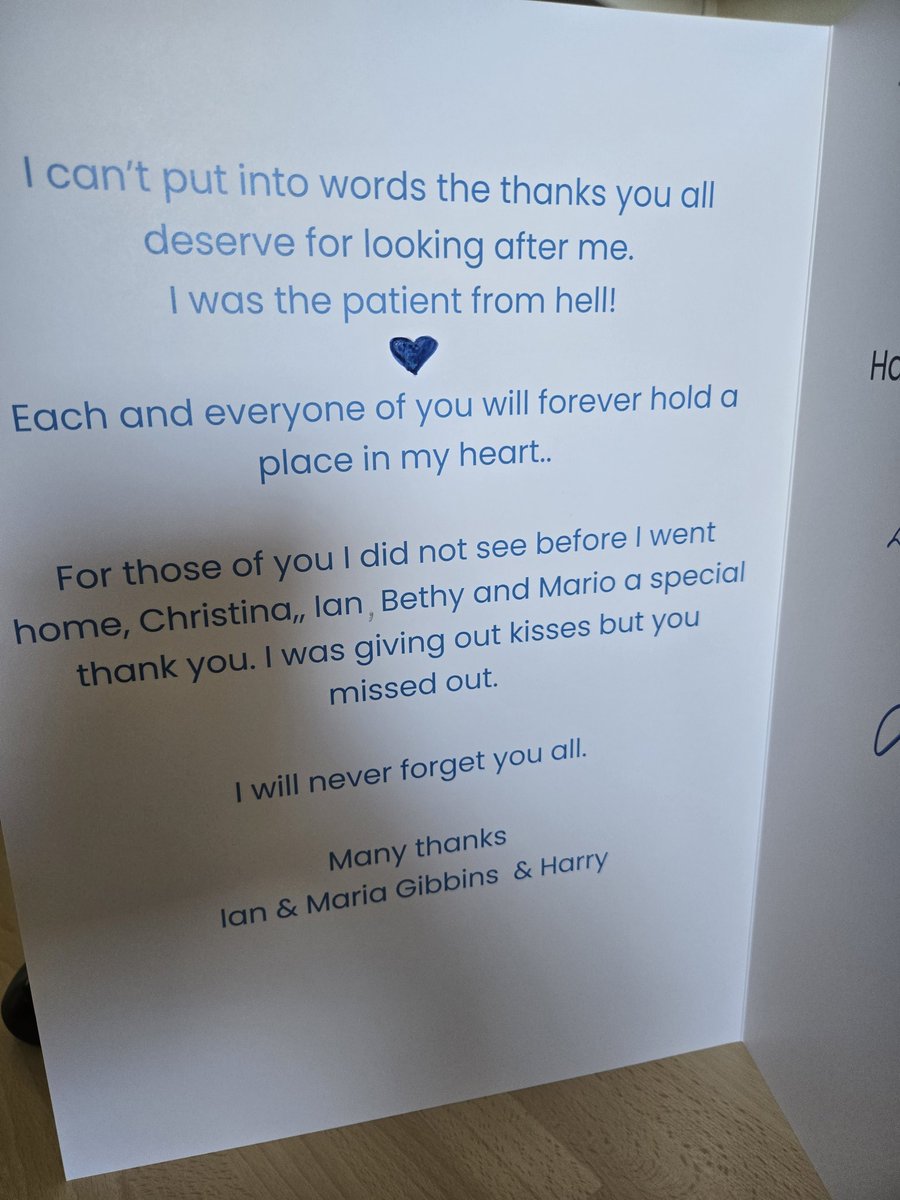 I can't put into words the thanks you all
deserve for looking after me.
I was the patient from hell!
Each and everyone of you will forever hold a
place in my heart..
For those of you I did not see before I went
home, Christina,, Ian , Bethy and Mario a special
thank you. I was giving out kisses but you
missed out.
I will never forget you all.
Many thanks
Ian & Maria Gibbins & Harry